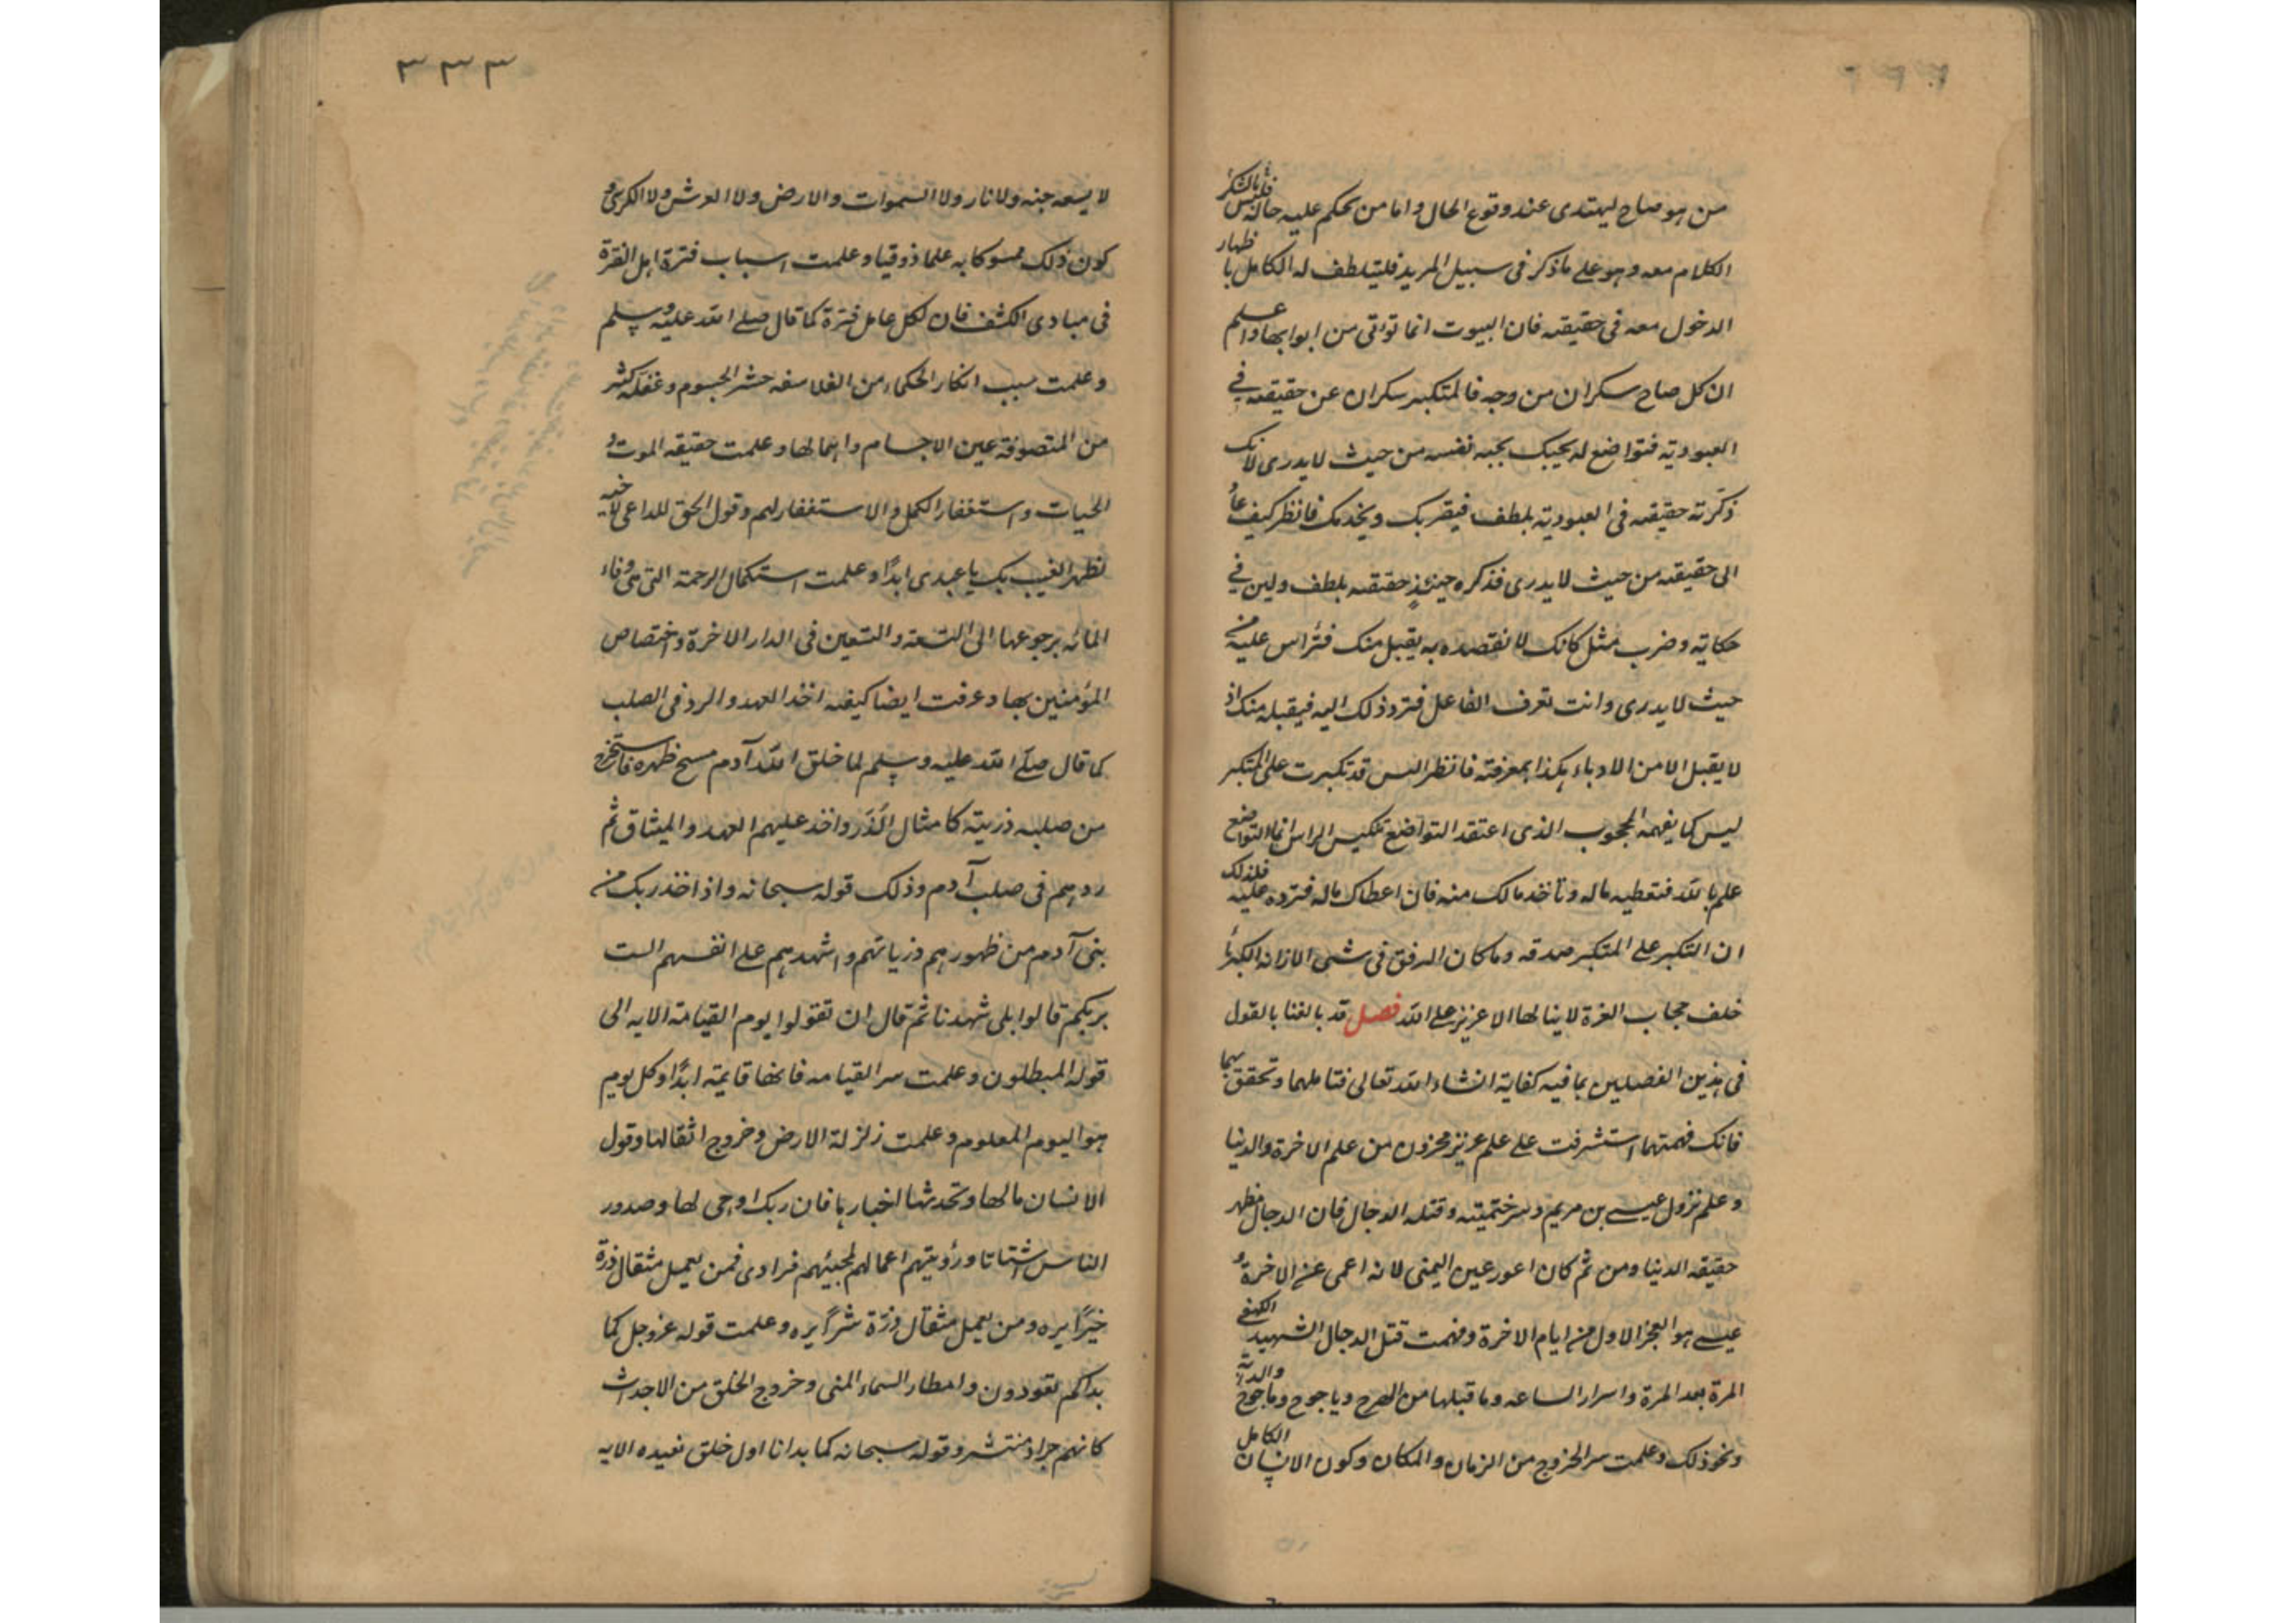 من هو صاح ليهتدى عند وقوع الحال واما من يحكم عليه حاله فليس بالشكر
الكلام معه وهو على ما ذكر فى سبيل المريد فليتلطف له الكامل باظهار
الدخول معه فى حقيقته فان البيوت انما تواتى من ابوابها واعلم
ان كل صاح سكران من وجه فالمتكبر سكران عن حقيقته فى
العبودية فتواضع له يحببك يحبه نفسه من حيث لا يدرى لانك
ذكرته حقيقته فى العبودية بلطف فيقربك ويخدمك فانظر كيف عاد
الى حقيقته من حيث لا يدرى فذكره حينئذ حقيقته بلطف ولين فى
حكاية وضرب مثل كانك لا تقصده به يقبل منك فترأس عليه من
حيث لا يدرى وانت تعرف الفاعل فترد ذلك اليه فيقبله منك اذ
لا يقبل الا من الادباء هكذا بمعرفته فانظر اليس قد تكبرت على المتكبر
ليس كما يفهمه المحجوب الذى اعتقد التواضع تنكيس الراس انما التواضع
علم بالله فتعطيه ماله وتأخذ مالك منه فان اعطاك ماله فترده عليه فلذلك
ان التكبر على المتكبر صدقه وما كان الرفق فى شى الا زانه الكبرياء
خلف حجاب العزة لا ينالها الا عزيز على الله فصل قد بالغنا بالقول
فى هذين الفصلين بما فيه كفاية انشاء الله تعالى فتاملهما وتحقق بهما
فانك فهمتهما استشرفت على علم عزيز مخزون من علم الاخرة والدنيا
وعلم نزول عيسى بن مريم وسر ختميته وقتله الدجال فان الدجال مظهر
حقيقه الدنيا ومن ثم كان اعور عين اليمنى لانه اعمى عن الاخرة و
عيسى هو الفجر الاول من ايام الاخرة وفهمت قتل الدجال الشهيد
المرة بعد المرة واسرار الساعه وما قبلها من الهرج وياجوج وماجوج والدابة
ونحو ذلك وعلمت سر الخروج من الزمان والمكان وكون الانسان الكامل
٣٣٣
لا يسعه جنه ولا نار ولا السموات والارض ولا العرش ولا الكرسى و
كون ذلك ممسوكا به علما ذوقيا وعلمت اسباب فترة اهل الفترة
فى مبادى الكشف فان لكل عامل فترة كما قال صلى الله عليه وسلم
وعلمت سبب انكار الحكماء من الفلاسفه حشر الجسوم وغفلة كثير
من المتصوفة عين الاجسام واهمالها وعلمت حقيقه الموت و
الحيات واستغفار الكمل والاستغفار لهم وقول الحق للداعى لاخيه
بظهر الغيب بك يا عبدى ابدًا وعلمت استكمال الرحمة التى هى وفاء
المائه برجوعها الى التسعة والتسعين فى الدار الاخرة واختصاص
المؤمنين بها وعرفت ايضا كيفه اخذ العهد والرد فى الصلب
كما قال صلى الله عليه وسلم لما خلق الله آدم مسح ظهره فاستخرج
من صلبه ذريته كامثال الذر واخذ عليهم العهد والميثاق ثم
ردهم فى صلب آدم وذلك قوله سبحانه واذ اخذ ربك من
بنى آدم من ظهورهم ذرياتهم واشهدهم على انفسهم الست
بربكم قالوا بلى شهدنا ثم قال ان تقولوا يوم القيامة الايه الى
قوله المبطلون وعلمت سر القيامه فانها قايمة ابدًا وكل يوم
هو اليوم المعلوم وعلمت زلزلة الارض وخروج اثقالها وقول
الانسان مالها وتحدثها اخبارها فان ربك اوحى لها وصدور
الناس اشتاتا ورؤيتهم اعمالهم لمجيئهم فرادى فمن يعمل مثقال ذرة
خيرًا يره ومن يعمل مثقال ذرة شرًا يره وعلمت قوله عز وجل كما
بداكم تعودون وامطار السماء المنى وخروج الخلق من الاجداث
كانهم جراد منتشر وقوله سبحانه كما بدانا اول خلق نعيده الايه